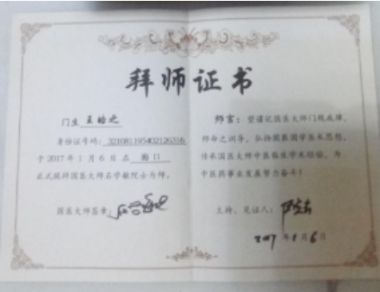 拜师证书
门生 王皓之
身份证号码：321081195402126316
于2017年1月6日在 海口
正式跪拜国医大师石学敏院士为师。
国医大师签章：
师言：望谨记国医大师门规戒律，
师命之训导，弘扬国医医术思想，
传承国医大师中医临床学术经验，为
中医药事业发展努力奋斗！
主持、见证人：
2017年1月6日